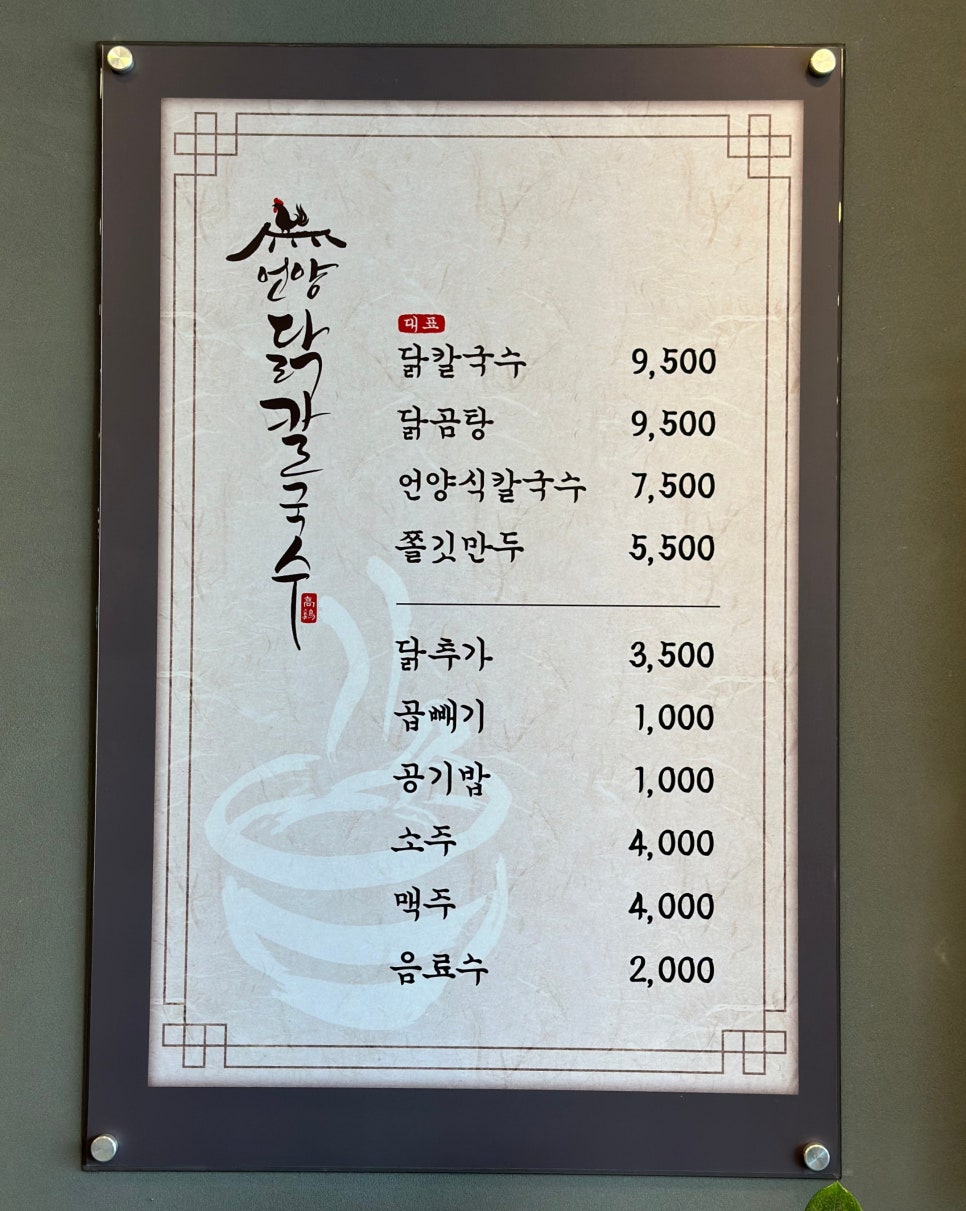 언양
닭칼국수
高鷄
대표
닭칼국수 9,500
닭곰탕 9,500
언양식칼국수 7,500
쫄깃만두 5,500
닭추가 3,500
곱빼기 1,000
공기밥 1,000
소주 4,000
맥주 4,000
음료수 2,000